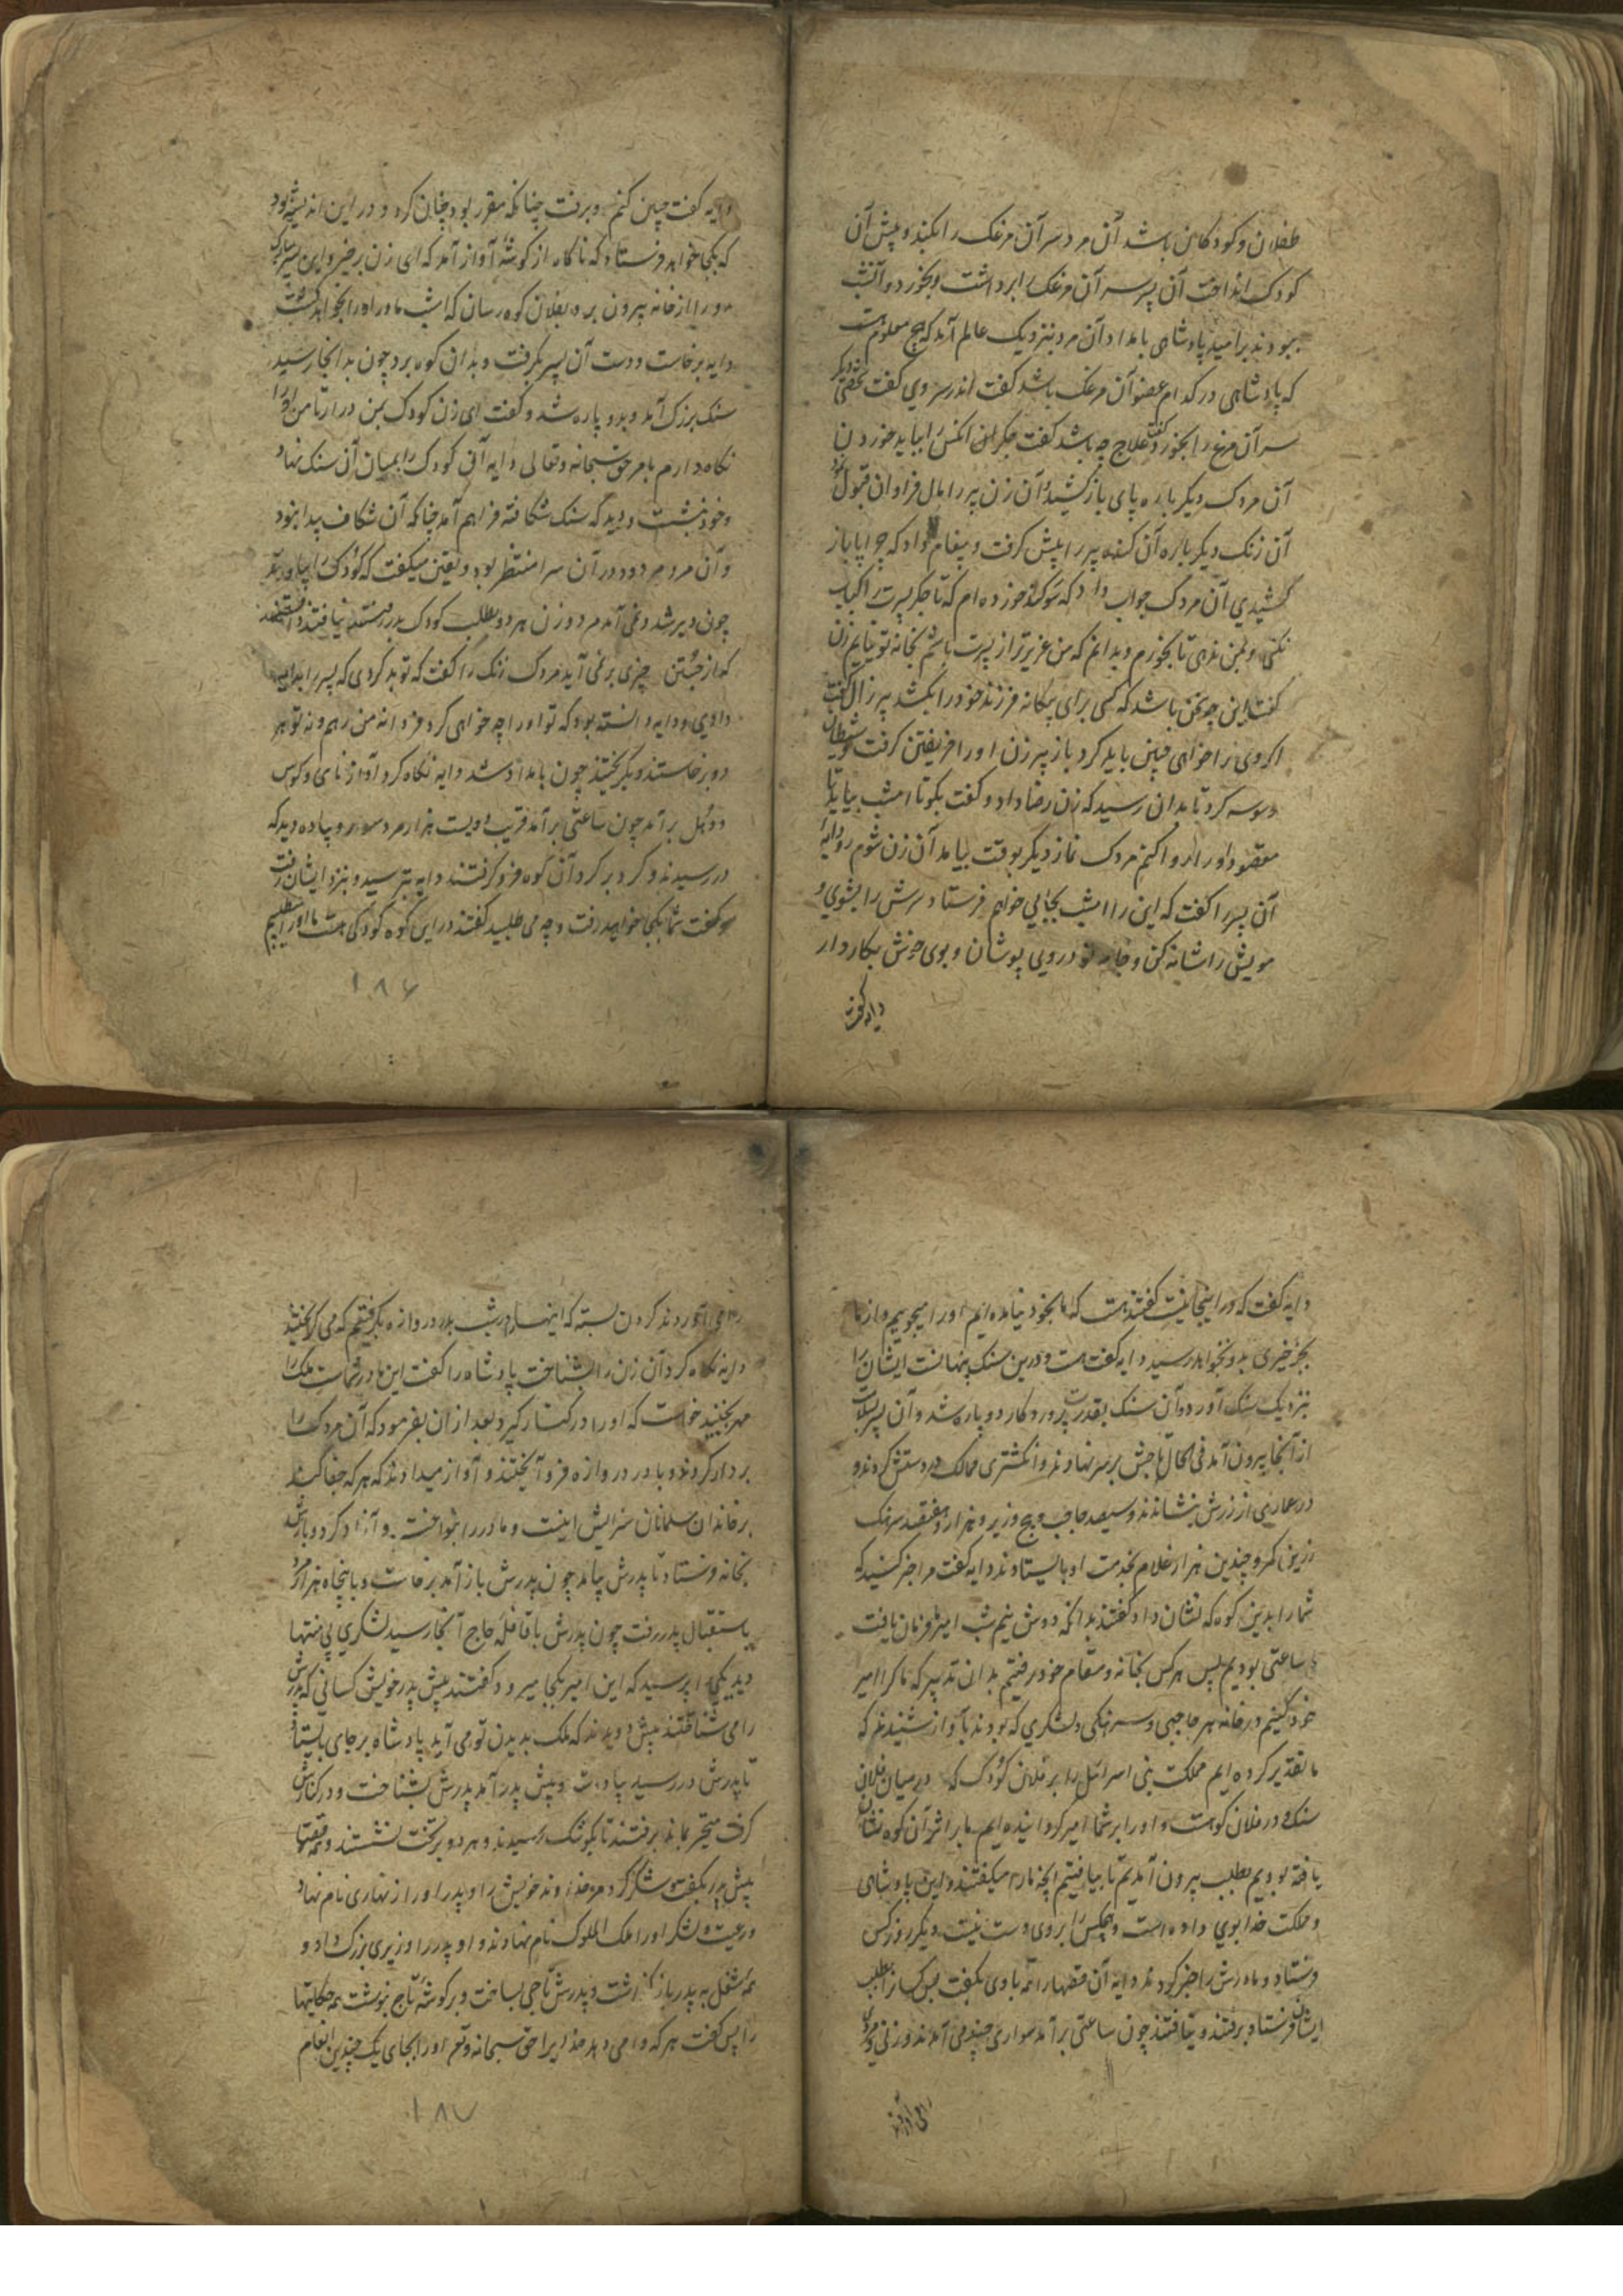 طفلان و کودکان باشد آن مرد سر آن مرغک را بکند و پیش آن
کودک انداخت آن پسر سر آن مرغک را برداشت و بخورد و آنشب
ببودند بر امید پادشاهی بامداد آن مرد بنزدیک عالم آمد که هیچ معلوم هست
که پادشاهی در کدام عضو آن مرغک باشد گفت اندر سر وی گفت شخصی دیگر
سر آن مرغ را بخورد گفت علاج چه باشد گفت جگر آن آنکس را بباید خوردن
آن مردک دیگر باره پای باز کشید و آن زن پیر را مال فراوان قبول کرد
آن زنک دیگر باره آن کنده پیر را پیش گرفت و پیغام داد که چرا پا باز
کشیدی آن مردک جواب داد که سوکند خورده ام که تا جگر پسرت را کباب
نکنی و بمن ندهی تا بخورم و بدانم که من عزیزتر از پسرت باشم بخانه تو نیایم زن
گفت این چه سخن باشد که کسی برای بیگانه فرزند خود را بکشد پیر زال گفت
اگر وی را خواهی چنین باید کرد باز پیر زن او را فریفتن گرفت و شیطان
وسوسه کرد تا بدان رسید که زن رضا داد و گفت بگو تا امشب بیاید تا
مقصود او را روا کنم مردک نماز دیگر بوقت بیامد آن زن شوم رو دایه
آن پسر را گفت که این را امشب بجایی خواهم فرستاد سرش را بشوی و
مویش را شانه کن و جامه نو در وی پوشان و بوی خوش بکار دار
دایه گفت
دایه گفت چنین کنم و برفت چنانکه مقرر بود چنان کرد و در این اندیشه بود
که بکجا خواهد فرستاد که ناگاه از گوشه آواز آمد که ای زن برخیز و این پسر مبارک
رو را از خانه بیرون بر و بفلان کوه رسان که امشب مادر او را بخواهد کشت
دایه برخاست و دست آن پسر بگرفت و بدان کوه برد چون بدانجا رسید
سنک بزرک آمد و بدو پاره شد و گفت ای زن کودک بمن در آر تا من او را
نگاه دارم بامر حق سبحانه و تعالی دایه آن کودک را بمیان آن سنک نهاد
و خود بنشست و دید که سنک شکافته فراهم آمد چنانکه آن شکاف پیدا نبود
و آن مردم دود در آن سرا منتظر بود و یقین میگفت که کودک را بیاورند
چون دیر شد و نمی آمد مرد و زن هر دو بطلب کودک بدر رفتند نیافتند دانستند
که از جستن چیزی بر نمی آید مردک زنک را گفت که تو بد کردی که پسر را بدایه
دادی و دایه دانسته بود که تو او را چه خواهی کرد فردا نه من رهم و نه تو هر
دو برخاستند و بگریختند چون بامداد شد دایه نگاه کرد آواز نای و کوس
و دهل بر آمد چون ساعتی بر آمد قریب دویست هزار مرد سوار و پیاده دید که
در رسیدند و گرد بر گرد آن کوه فرو گرفتند دایه بترسید و بنزد ایشان رفت
و گفت شما بکجا خواهید رفت و چه می طلبید گفتند در این کوه کودکی هست ما او را میطلبیم
۱۸۶
دایه گفت که در اینجا نیست گفتند هست که ما بخود نیامده ایم او را میجوییم و از ما
بجز خیری بدو نخواهد رسید دایه گفت هست و درین سنک پنهانست ایشان را
بنزدیک سنک آورد و آن سنک بقدرت پروردکار دو پاره شد و آن پسر بسلامت
از آنجا بیرون آمد فی الحال تاجش بر سر نهادند و انگشتری ممالک در دستش کردند و
در عماری از زرش بنشاندند و سیصد حاجب و پنج وزیر و هزار و هفتصد سرهنک
زرین کمر و چندین هزار غلام بخدمت او بایستادند دایه گفت مرا خبر کنید که
شما را بدین کوه که نشان داد گفتند بدانکه دوش نیم شب امیر ما فرمان یافت
ما ساعتی بودیم پس هر کس بخانه و مقام خود رفتیم بدان تدبیر که ما که را امیر
خود کنیم در خانه هر حاجبی و سرهنکی و لشکری که بودند تا آواز شنیدند که
ما تقدیر کرده ایم مملکت بنی اسرائیل را بر فلان کودک که در میان فلان
سنک و در فلان کوهست و او را بر شما امیر گردانیده ایم ما بر اثر آن کوه نشان
یافته بودیم بطلب بیرون آمدیم تا بیافتیم آنچه ما را میگفتند و این پادشاهی
و مملکت خدا بوی داده است و هیچکس را بر وی دست نیست دیگر روز کس
فرستاد و مادرش را خبر کردند دایه آن قصها را همه با وی بگفت پس کسان را بطلب
ایشان فرستاد برفتند و بیافتند چون ساعتی بر آمد سواری چند می آمدند و زنی و مردی
را می آوردند
را می آوردند گردن بسته که اینها را دوش بشب بدر دروازه بگرفتیم که می گریختند
دایه نگاه کرد آن زن را بشناخت پادشاه را گفت این مادر شماست ملک را
مهر بجنبید خواست که او را در کنار گیرد بعد از آن بفرمود که آن مردک را
بر دار کردند و بادر دروازه فرو آویختند و آواز میدادند که هر که جفا کند
بر خاندان مسلمانان سزایش اینست و مادر را بنواخت و آزاد کرد و بازش
بخانه فرستاد تا پدرش بیاید چون پدرش باز آمد برخاست و با پنجاه هزار مرد
باستقبال پدر رفت چون پدرش با قافله حاج آنجا رسید لشکری بی منتها
دید یکی را پرسید که این امیر بکجا میرود گفتند پیش پدر خویش کسانی که پدرش
را می شناختند پیش دویدند که ملک بدیدن تو می آید پادشاه بر جای بایستاد
تا پدرش در رسید پیاده شد و پیش پدر آمد پدرش بشناخت و در کنارش
گرفت متحیر بماند برفتند تا بکوشک رسیدند و هر دو بر تخت نشستند و همه قصها
پیش پدر بگفت و شکر کرد مر خداوند خویش را و پدر او را از نهاری نام نهاد
و رعیت و لشکر او را ملک الملوک نام نهادند و او پدر را وزیری بزرک داد و
همه شغل به پدر باز گذاشت و پدرش تاجی بساخت و بر گوشه تاج نوشت همه حکایتها
را پس گفت هر که وام می دهد خدایرا حق سبحانه و تعالی او را بجای یک چندین انعام
۱۸۷